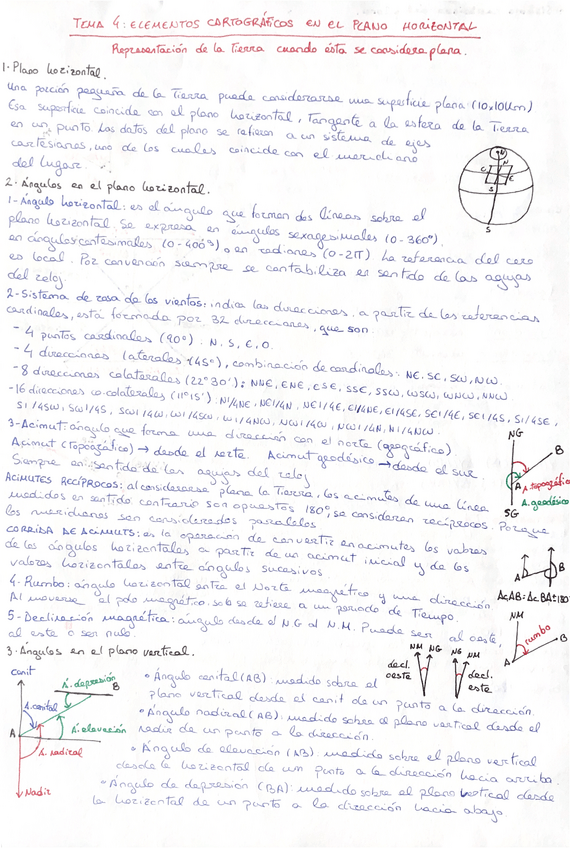 TEMA 4: ELEMENTOS CARTOGRÁFICOS EN EL PLANO HORIZONTAL
Representación de la Tierra cuando ésta se considera plana.
1. Plano horizontal.
Una porción pequeña de la Tierra puede considerarse una superficie plana (10x10Km)
Esa superficie coincide con el plano horizontal, Tangente a la esfera de la Tierra
en un punto. Los datos del plano se refieren a un sistema de ejes
cartesianos, uno de los cuales coincide con el meridiano
del lugar.
N
N
C
E
S
S
2. Ángulos en el plano horizontal.
1- Ángulo horizontal: es el ángulo que forman dos líneas sobre el
plano horizontal. Se expresa en ángulos sexagesimales (0-360º),
en ángulos centesimales (0-400º) o en radianes (0-2π) La referencia del cero
es local. Por convención siempre se contabiliza en sentido de las agujas
del reloj.
2- Sistema de rosa de los vientos: indica las direcciones, a partir de las referencias
cardinales, está formada por 32 direcciones, que son:
- 4 puntos cardinales (90º): N, S, E, O.
- 4 direcciones laterales (45º), combinación de cardinales: NE, SE, SW, NW.
- 8 direcciones colaterales (22º30'): NNE, ENE, ESE, SSE, SSW, WSW, WNW, NNW.
- 16 direcciones co-colaterales (11º15'). N1/4NE, NE1/4N, NE1/4E, E1/4NE, E1/4SE, SE1/4E, SE1/4S, S1/4SE,
S1/4SW, SW1/4S, SW1/4W, W1/4SW, W1/4NW, NW1/4W, NW1/4N, N1/4NW.
3- Acimut: ángulo que forma una dirección con el norte (geográfico).
Acimut (Topográfico) → desde el norte. Acimut geodésico → desde el sur.
Siempre en sentido de las agujas del reloj
NG
B
A
A. topográfico
A. geodésico
SG
ACIMUTES RECÍPROCOS: al considerarse plana la Tierra, los acimutes de una línea
medidos en sentido contrario son opuestos 180º, se consideran recíprocos. Porque
los meridianos son considerados paralelos
CORRIDA DE ACIMUTS: es la operación de convertir en acimutes los valores
de los ángulos horizontales a partir de un acimut inicial y de los
valores horizontales entre ángulos sucesivos
A
B
AcAB = AcBA ± 180º
4- Rumbo: ángulo horizontal entre el Norte magnético y una dirección
Al moverse el polo magnético, solo se refiere a un periodo de Tiempo.
NM
B
rumbo
A
5- Declinación magnética: ángulo desde el NG al NM. Puede ser al oeste,
al este o ser nulo.
NM NG
decl.
oeste
NG NM
decl.
este
3. Ángulos en el plano vertical.
cenit
A. depresión
B
A. cenital
A
A. elevación
A. nadiral
Nadir
• Ángulo cenital (AB): medido sobre el
plano vertical desde el cenit de un punto a la dirección.
• Ángulo nadiral (AB): medido sobre el plano vertical desde el
nadir de un punto a la dirección.
• Ángulo de elevación (AB): medido sobre el plano vertical
desde la horizontal de un punto a la dirección hacia arriba.
• Ángulo de depresión (BA): medido sobre el plano vertical desde
la horizontal de un punto a la dirección hacia abajo